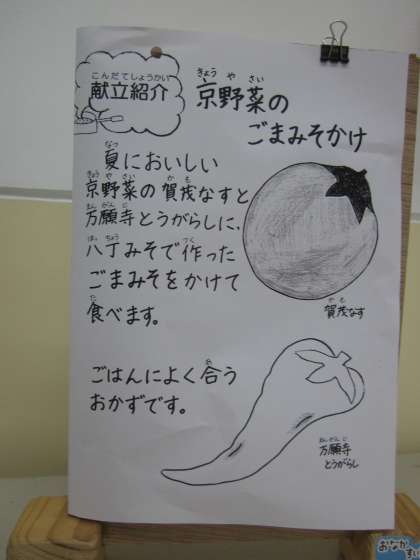 こんだてしょうかい
献立紹介
きょうやさい
京野菜の
ごまみそかけ
なつ
夏においしい
きょうやさい かも
京野菜の賀茂なすと
まんがんじ
万願寺とうがらしに、
はっちょう つく
八丁みそで作った
ごまみそをかけて
た
食べます。
かも
賀茂なす
あ
ごはんによく合う
おかずです。
まんがんじ
万願寺
とうがらし
おなかす